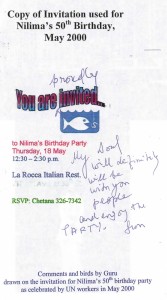 Copy of Invitation used for
Nilima's 50th Birthday,
May 2000
proudly
You are invited...
to Nilima's Birthday Party
Thursday, 18 May
12:30 – 2:30 p.m.
La Rocca Italian Rest.
RSVP: Chetana 326-7342
My Soul
will definitely
will be
with you
people
and enjoy
the
PARTY.
Comments and birds by Guru
drawn on the invitation for Nilima's 50th birthday party
as celebrated by UN workers in May 2000